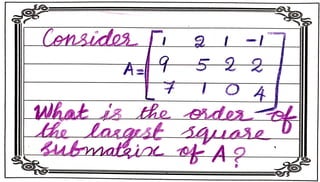 Consider
A = [1 2 1 -1
9 5 2 2
7 1 0 4]
What is the order of
the largest square
submatrix of A?